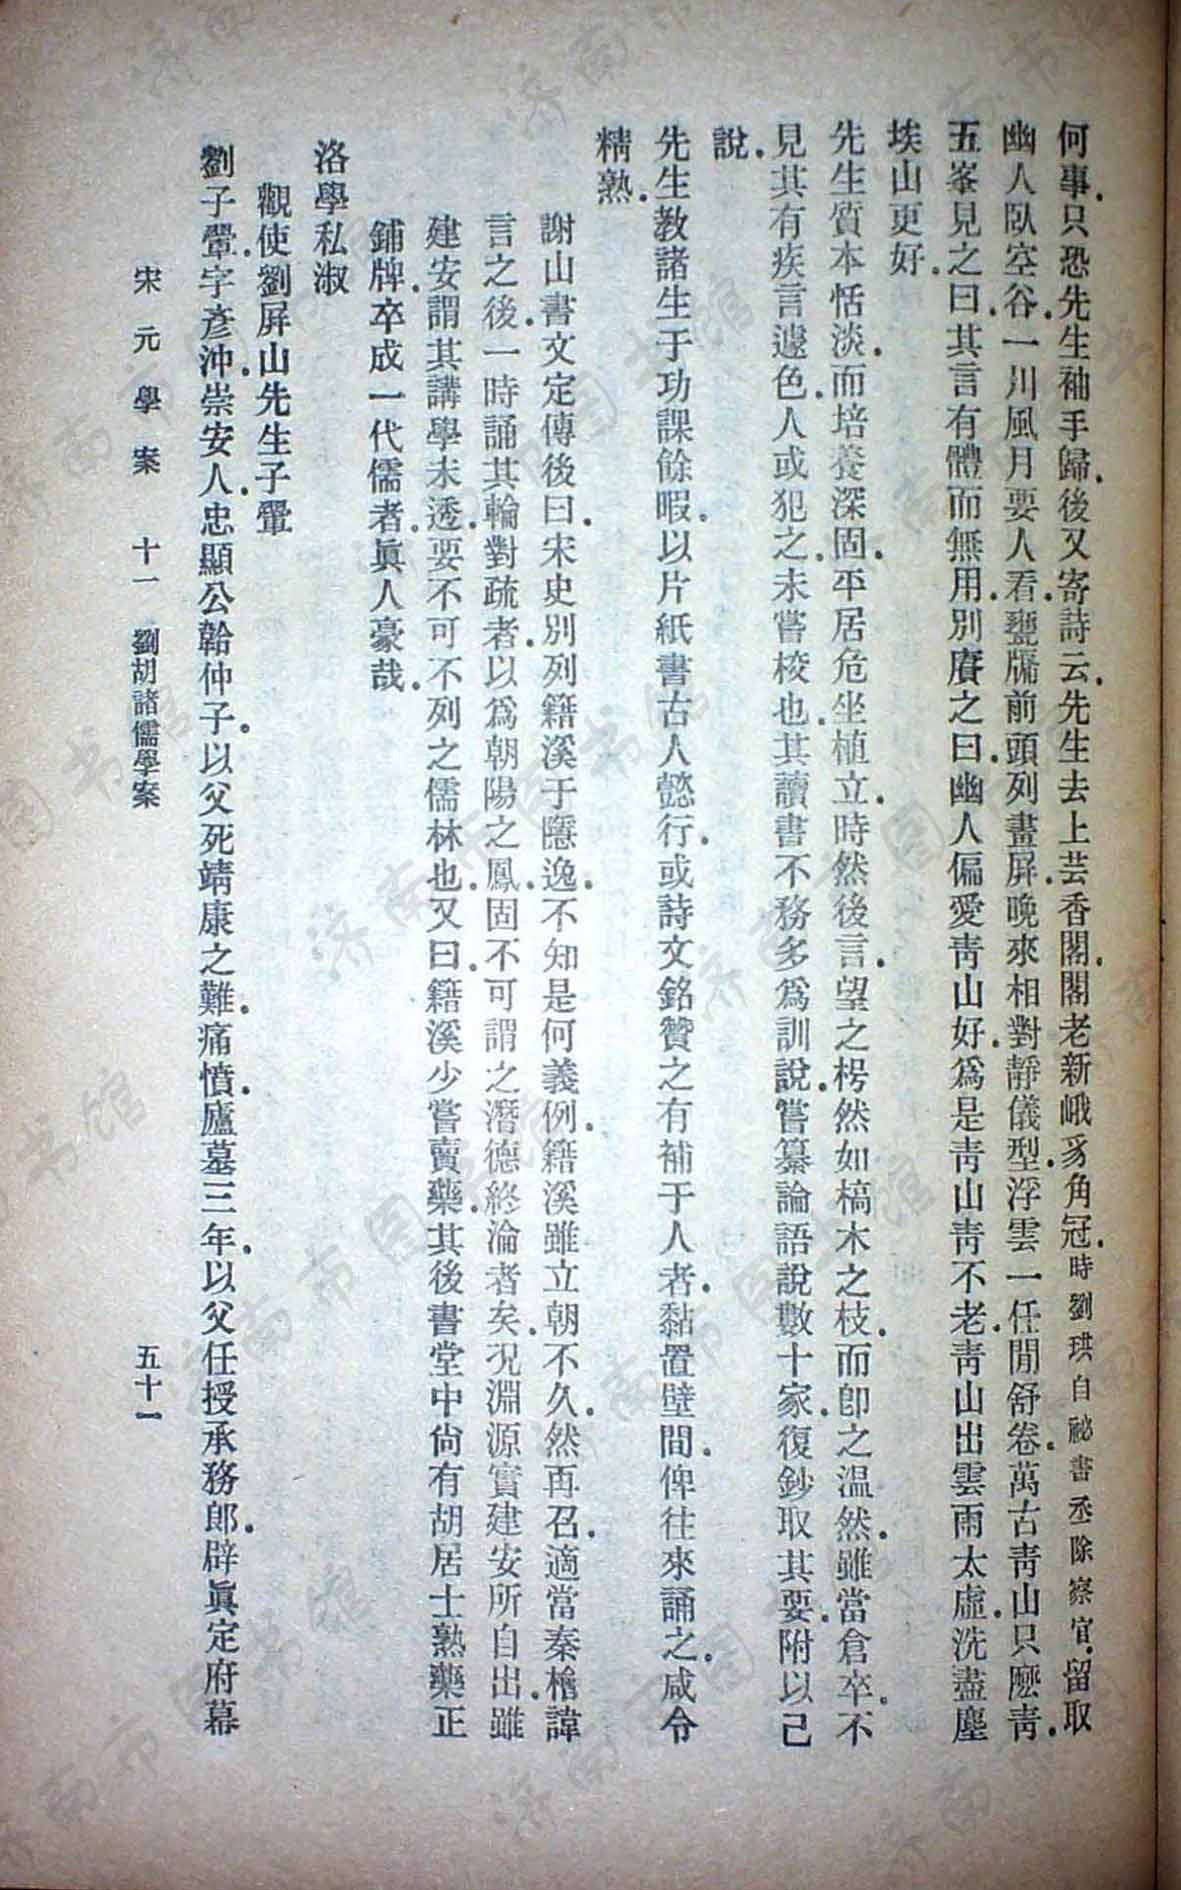 何事.只恐先生袖手歸.後又寄詩云.先生去上芸香閣.閣老新峨豸角冠.時劉珙自祕書丞除察官.留取
幽人臥空谷.一川風月要人看.甕牖前頭列畫屏.晚來相對靜儀型.浮雲一任閒舒卷.萬古青山只麽青.
五峯見之.曰.其言有體而無用.別賡之曰.幽人偏愛青山好.爲是青山青不老.青山出雲雨太虛.洗盡塵
埃山更好.
先生質本恬淡.而培養深固.平居危坐植立.時然後言.望之枵然如槁木之枝.而卽之温然.雖當倉卒.不
見其有疾言遽色.人或犯之.未嘗校也.其讀書不務多爲訓說.嘗纂論語說數十家.復鈔取其要.附以己
說.
先生教諸生于功課餘暇.以片紙書古人懿行.或詩文銘贊之有補于人者.黏置壁間.俾往來誦之.咸令
精熟.
謝山書文定傳後曰.宋史別列籍溪于隱逸.不知是何義例.籍溪雖立朝不久.然再召.適當秦檜諱
言之後.一時誦其輪對疏者.以爲朝陽之鳳.固不可謂之潛德終淪者矣.況淵源實建安所自出.雖
建安謂其講學未透.要不可不列之儒林也.又曰.籍溪少嘗賣藥.其後書堂中尙有胡居士熟藥正
鋪牌.卒成一代儒者.眞人豪哉.
洛學私淑
觀使劉屏山先生子翬
劉子翬.字彥沖.崇安人.忠顯公韐仲子.以父死靖康之難.痛憤.廬墓三年.以父任授承務郎.辟眞定府幕
宋元學案 十一 劉胡諸儒學案 五十一